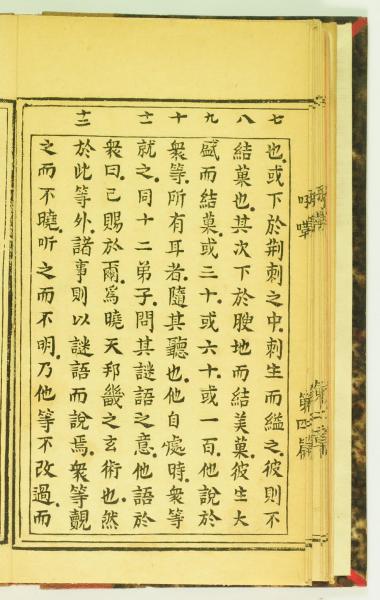 七 八 九 十 十一 十二
也。或下於荆刺之中。刺生而縊之。彼則不
結菓也。其次下於腴地而結美菓。彼生大
盛而結菓。或三十。或六十。或一百。他說於
衆等。所有耳者。隨其聽也。他自處時。衆等
就之。同十二弟子。問其謎語之意。他語於
衆曰。已賜於爾。爲曉天邦畿之玄術也。然
於此等外。諸事則以謎語而說焉。衆等觀
之而不曉。听之而不明。乃他等不改過。而